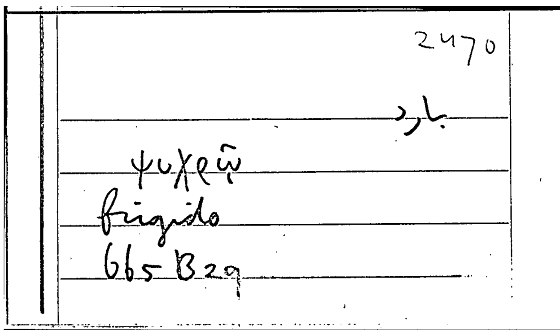 2470
ψυχρῷ
frigido
665 B29